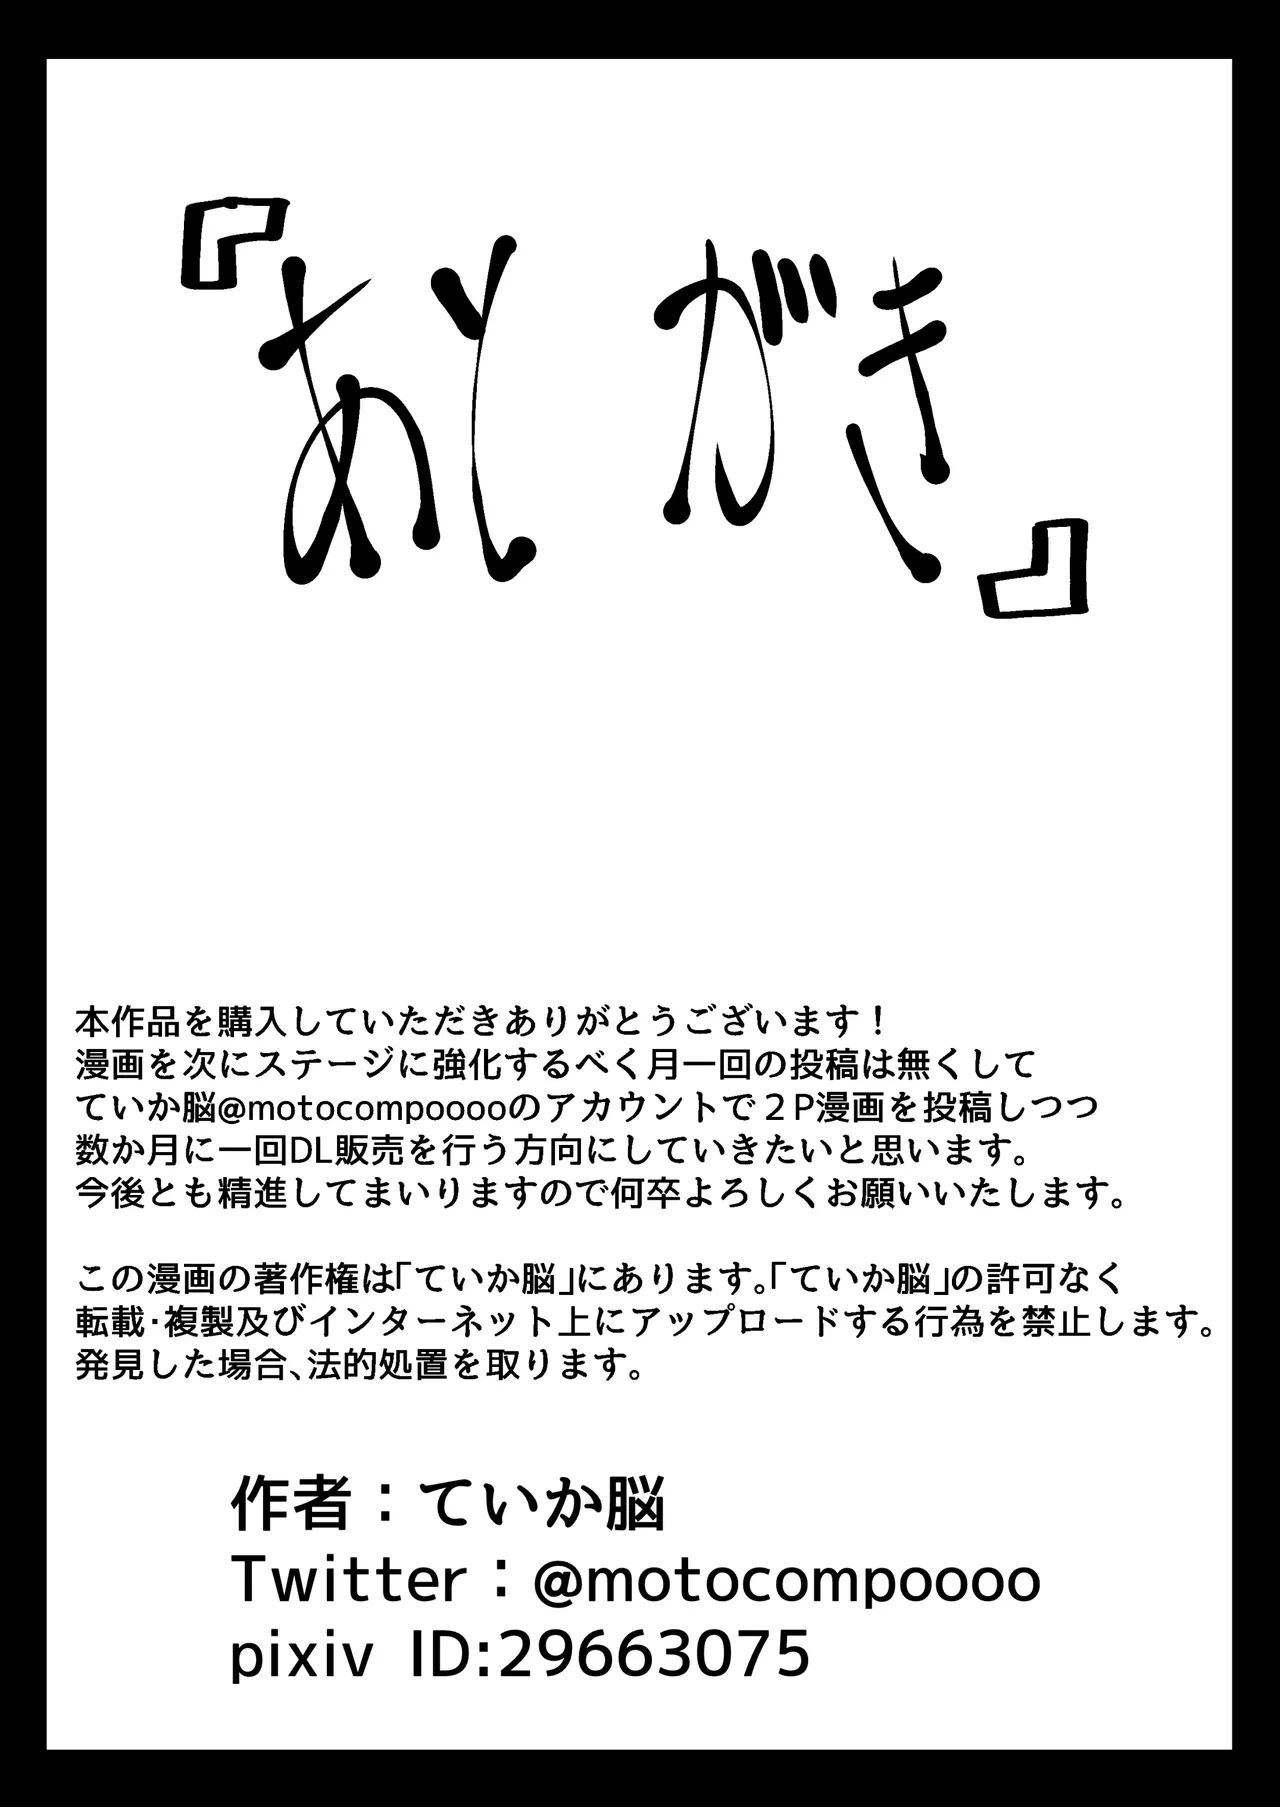 『あとがき』
本作品を購入していただきありがとうございます!
漫画を次にステージに強化するべく月一回の投稿は無くして
ていか脳@motocompooooのアカウントで２P漫画を投稿しつつ
数か月に一回DL販売を行う方向にしていきたいと思います。
今後とも精進してまいりますので何卒よろしくお願いいたします。
この漫画の著作権は「ていか脳」にあります。「ていか脳」の許可なく
転載･複製及びインターネット上にアップロードする行為を禁止します。
発見した場合、法的処置を取ります。
作者：ていか脳
Twitter：@motocompoooo
pixiv ID:29663075